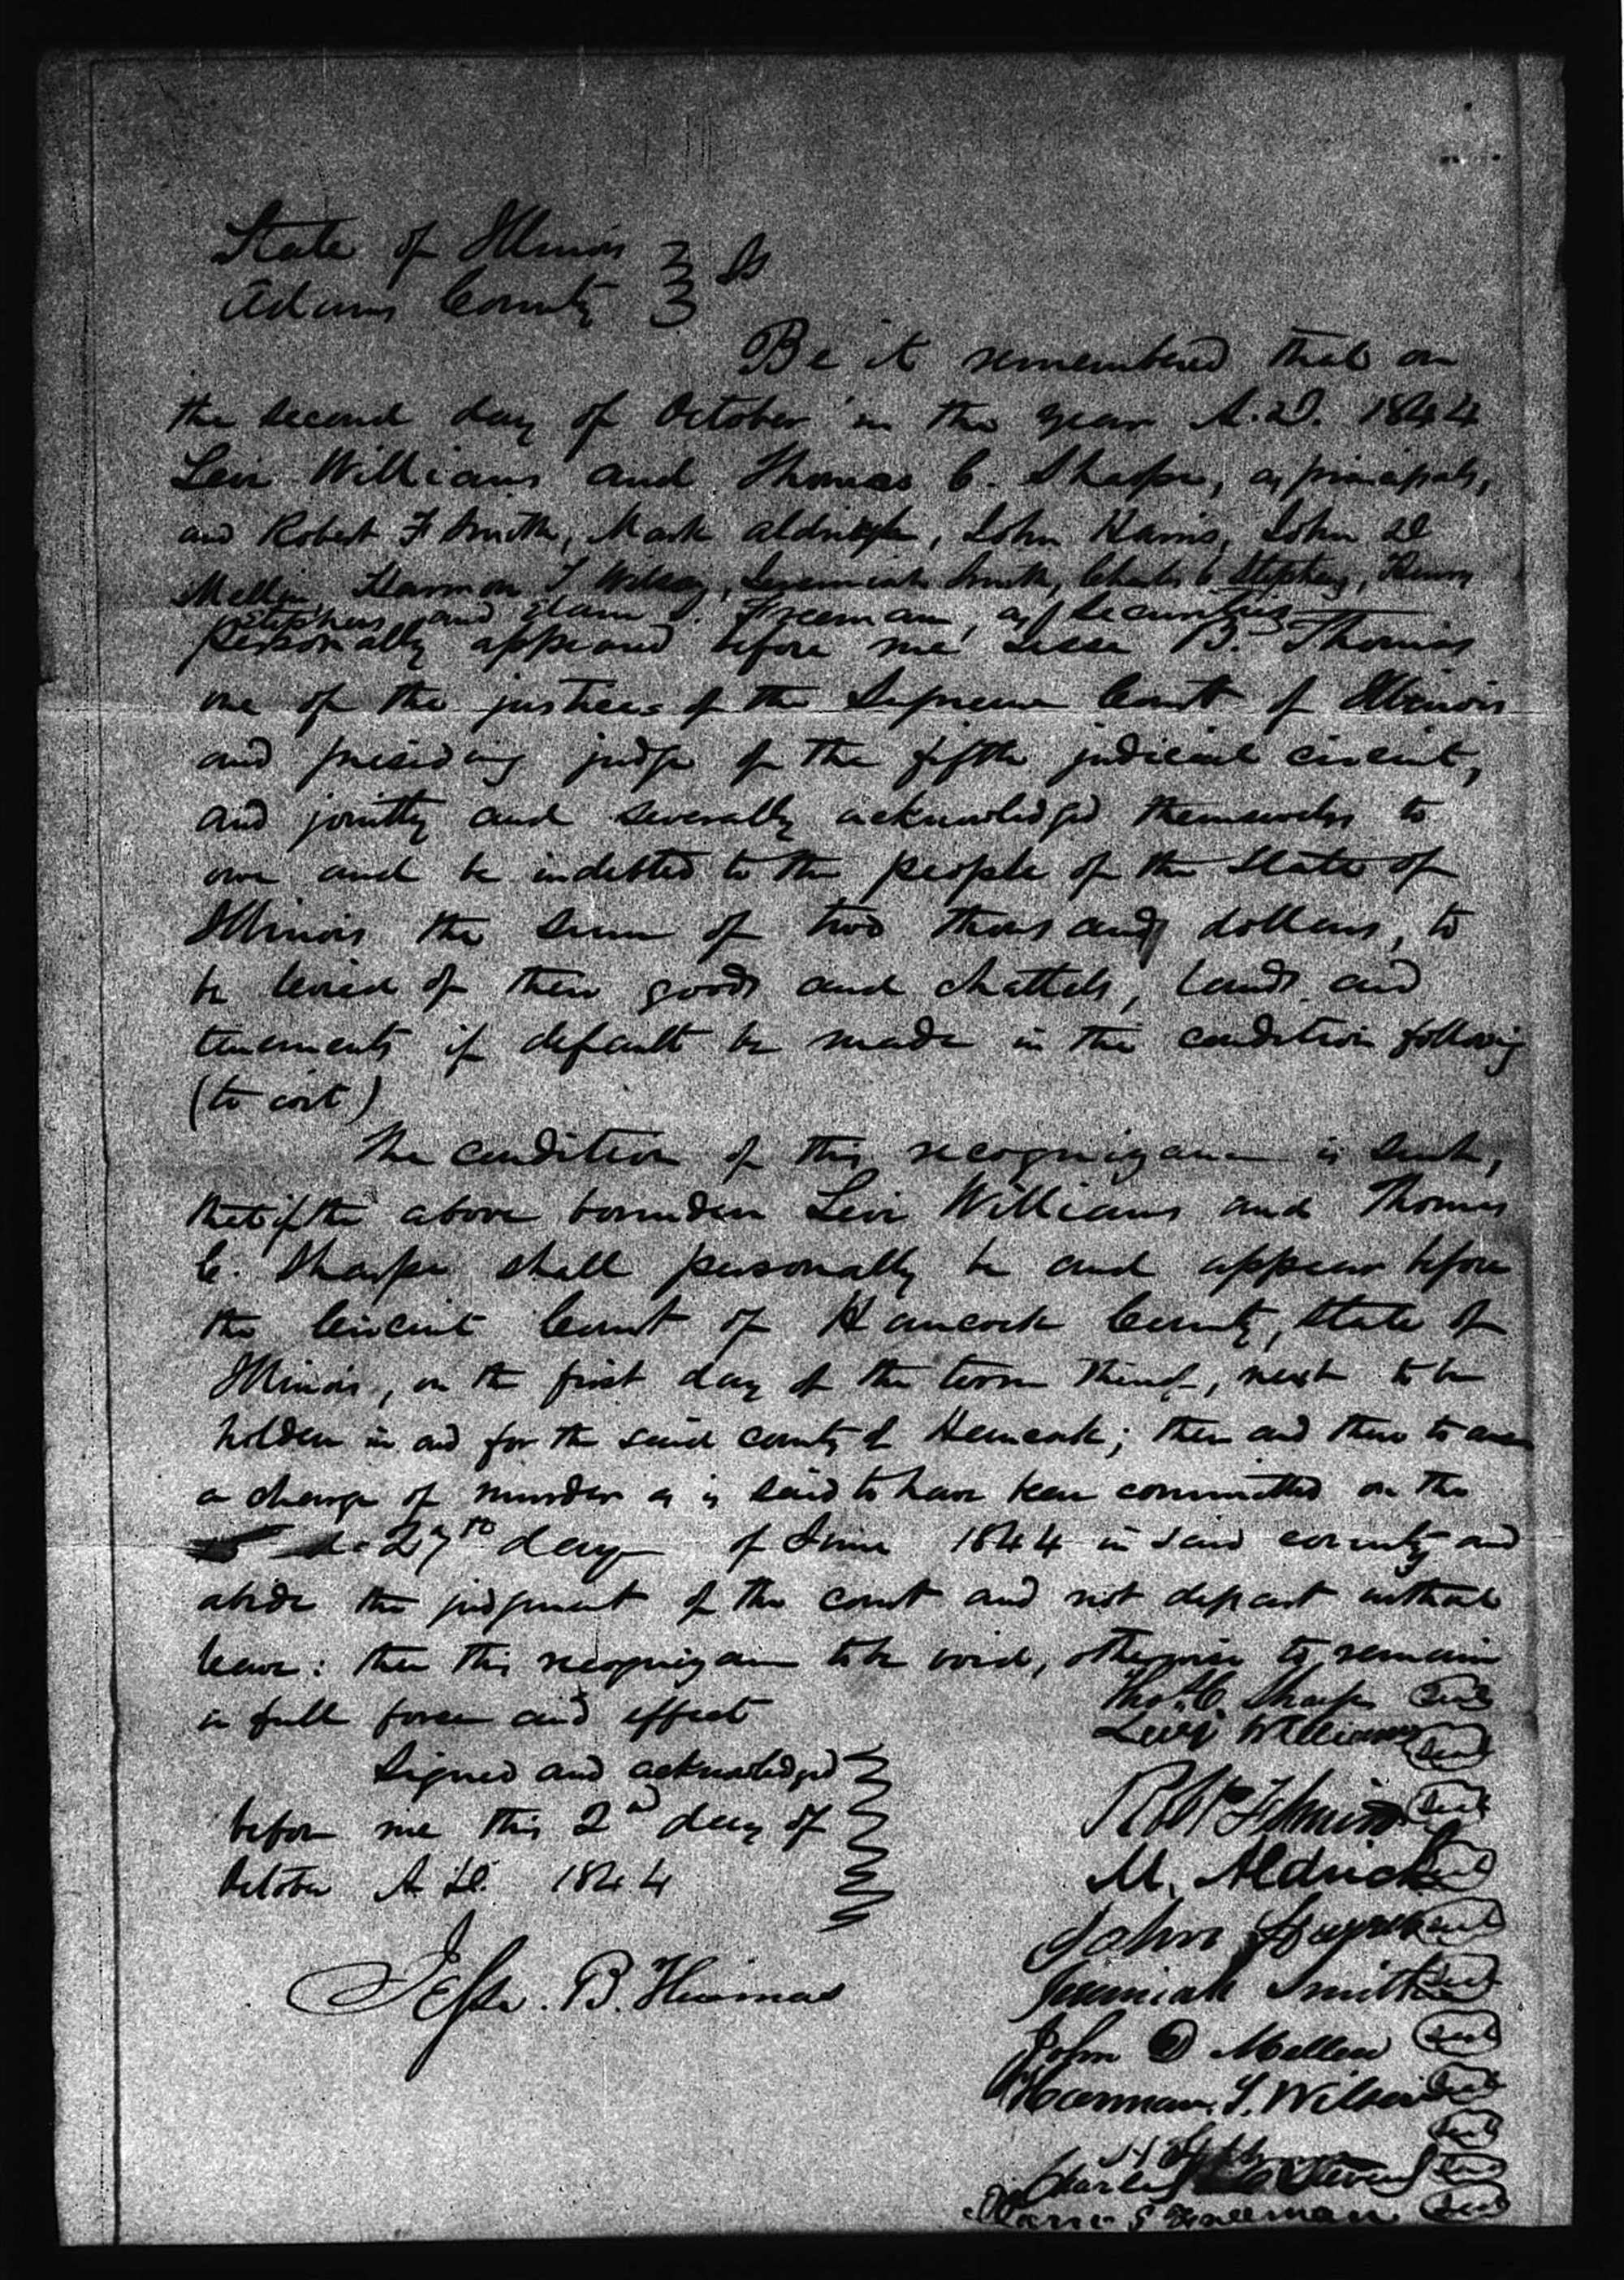 State of Illinois } ss
Adams County }
Be it remembered that on
the second day of October in the year A.D. 1844
Levi Williams and Thomas C. Sharpe, as principals,
and Robert F Smith, Mark Aldrich, John Harris, John D
Mellen, Harmon T Wilson, Jeremiah Smith, Charles C Stephens, Henry
Stephens, and Elam S. Freeman, as securities
personally appeared before me Jesse B. Thomas
one of the justices of the Supreme Court of Illinois
and presiding judge of the fifth judicial circuit,
and jointly and severally acknowledged themselves to
owe and be indebted to the people of the State of
Illinois the sum of two thousand dollars, to
be levied of their goods and chattels, lands and
tenements if default be made in the condition following
(to wit)
The condition of this recognizance is such,
that if the above bounden Levi Williams and Thomas
C. Sharpe shall personally be and appear before
the Circuit Court of Hancock County, State of
Illinois, on the first day of the term thereof, next to be
holden in and for the said county of Hancock; then and there to
a charge of murder as is said to have been committed on the
27th day of June 1844 in said county and
abide the judgment of the court and not depart without
leave: then this recognizance to be void, otherwise to remain
in full force and effect
Thos. C Sharp Seal
Levi Williams Seal
Signed and acknowledged
before me this 2nd day of
October A.D. 1844
Jesse. B. Thomas
Robt F Smith Seal
M. Aldrich Seal
John Seal
Jeremiah Smith Seal
John D Mellen Seal
Harman T. Wilson Seal
Seal
Charles C Stevens Seal
Elam S Freeman Seal